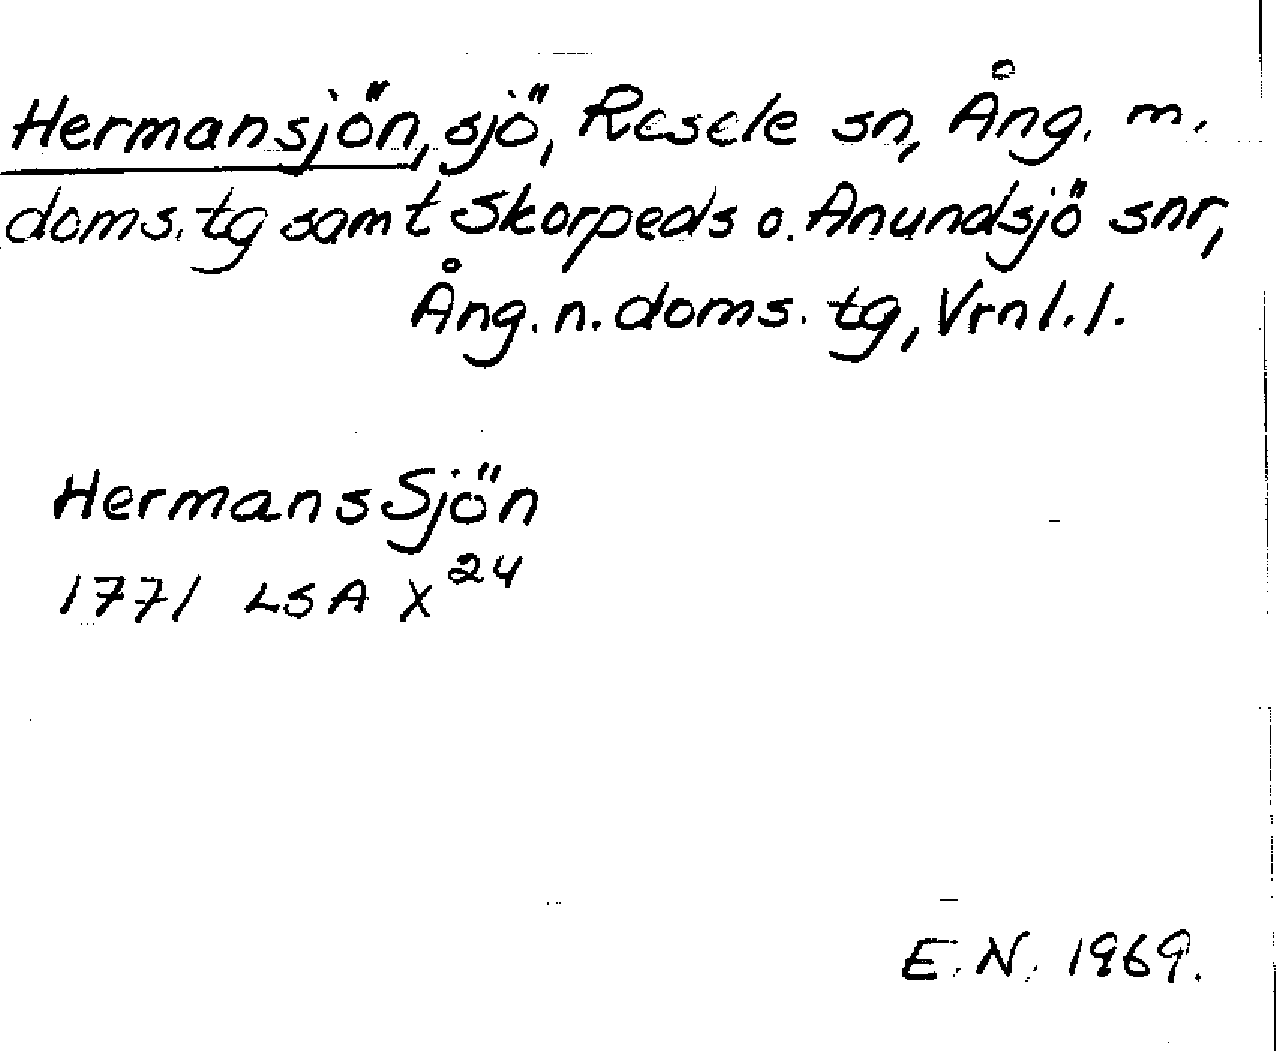 Hermansjön, sjö, Resele sn, Ång. m.
doms. tg samt Skorpeds o. Anundsjö snr,
Ång. n. doms. tg, Vrnl. l.
HermansSjön
1771 LSA X24
E. N. 1969.